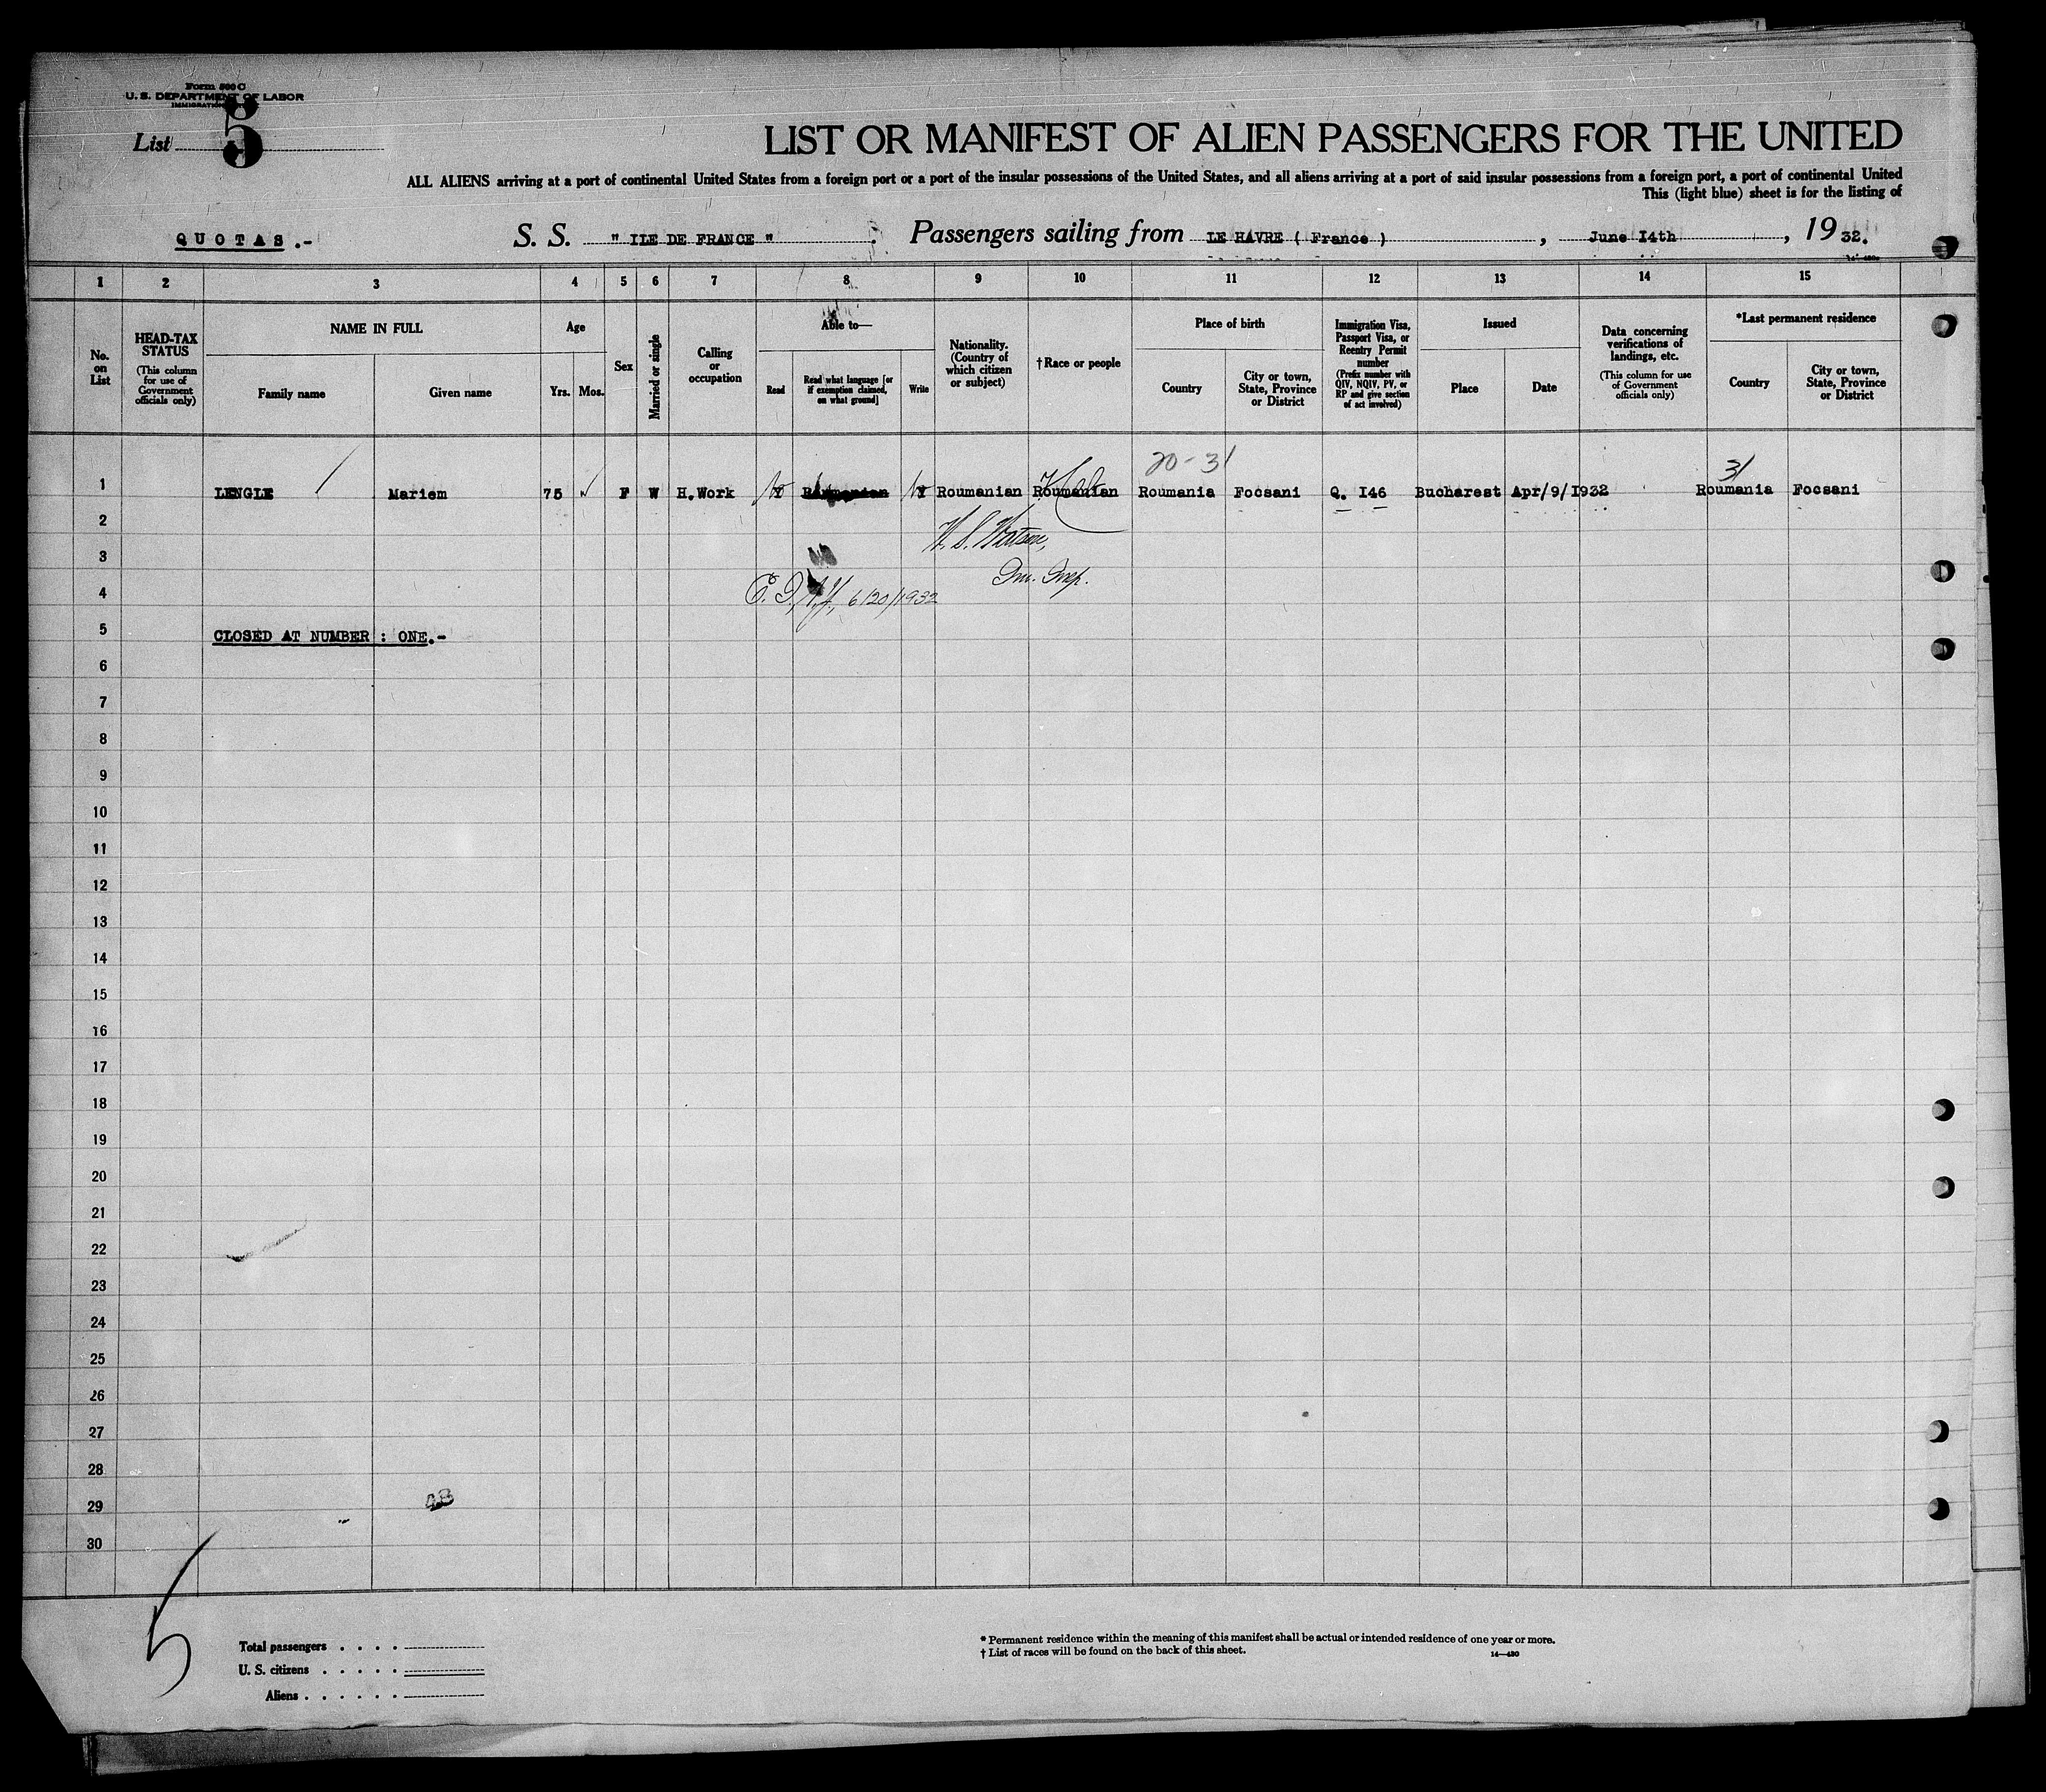 Form 500 C
U. S. DEPARTMENT OF LABOR
IMMIGRATION
List 5
LIST OR MANIFEST OF ALIEN PASSENGERS FOR THE UNITED
ALL ALIENS arriving at a port of continental United States from a foreign port or a port of the insular possessions of the United States, and all aliens arriving at a port of said insular possessions from a foreign port, a port of continental United
This (light blue) sheet is for the listing of
QUOTAS.- S. S. " ILE DE FRANCE " Passengers sailing from LE HAVRE ( France ) , June I4th , 19 32.
1 2 3 4 5 6 7 8 9 10 11 12 13 14 15
No. on List
HEAD-TAX STATUS
(This column for use of Government officials only)
NAME IN FULL
Family name Given name
Age
Yrs. Mos.
Sex
Married or single
Calling or occupation
Able to—
Read
Read what language [or if exemption claimed, on what ground]
Write
Nationality. (Country of which citizen or subject)
† Race or people
Place of birth
Country
City or town, State, Province or District
Immigration Visa, Passport Visa, or Reentry Permit number
(Prefix number with QIV, NQIV, PV, or RP and give section of act involved)
Issued
Place Date
Data concerning verifications of landings, etc.
(This column for use of Government officials only)
*Last permanent residence
Country
City or town, State, Province or District
20-31 31
1 LENGLE Mariem 75 F W H.Work Y Roumanian Y Roumanian Roumanian Roumania Focsani Q. I46 Bucharest Apr/9/I932 Roumania Focsani
2
W. S. Watson,
3
Im. Insp.
4
6/20/1932
5 CLOSED AT NUMBER : ONE.-
6
7
8
9
10
11
12
13
14
15
16
17
18
19
20
21
22
23
24
25
26
27
28
29
30
5
Total passengers . . . .
U. S. citizens . . . . .
Aliens . . . . . .
* Permanent residence within the meaning of this manifest shall be actual or intended residence of one year or more.
† List of races will be found on the back of this sheet.
14—430